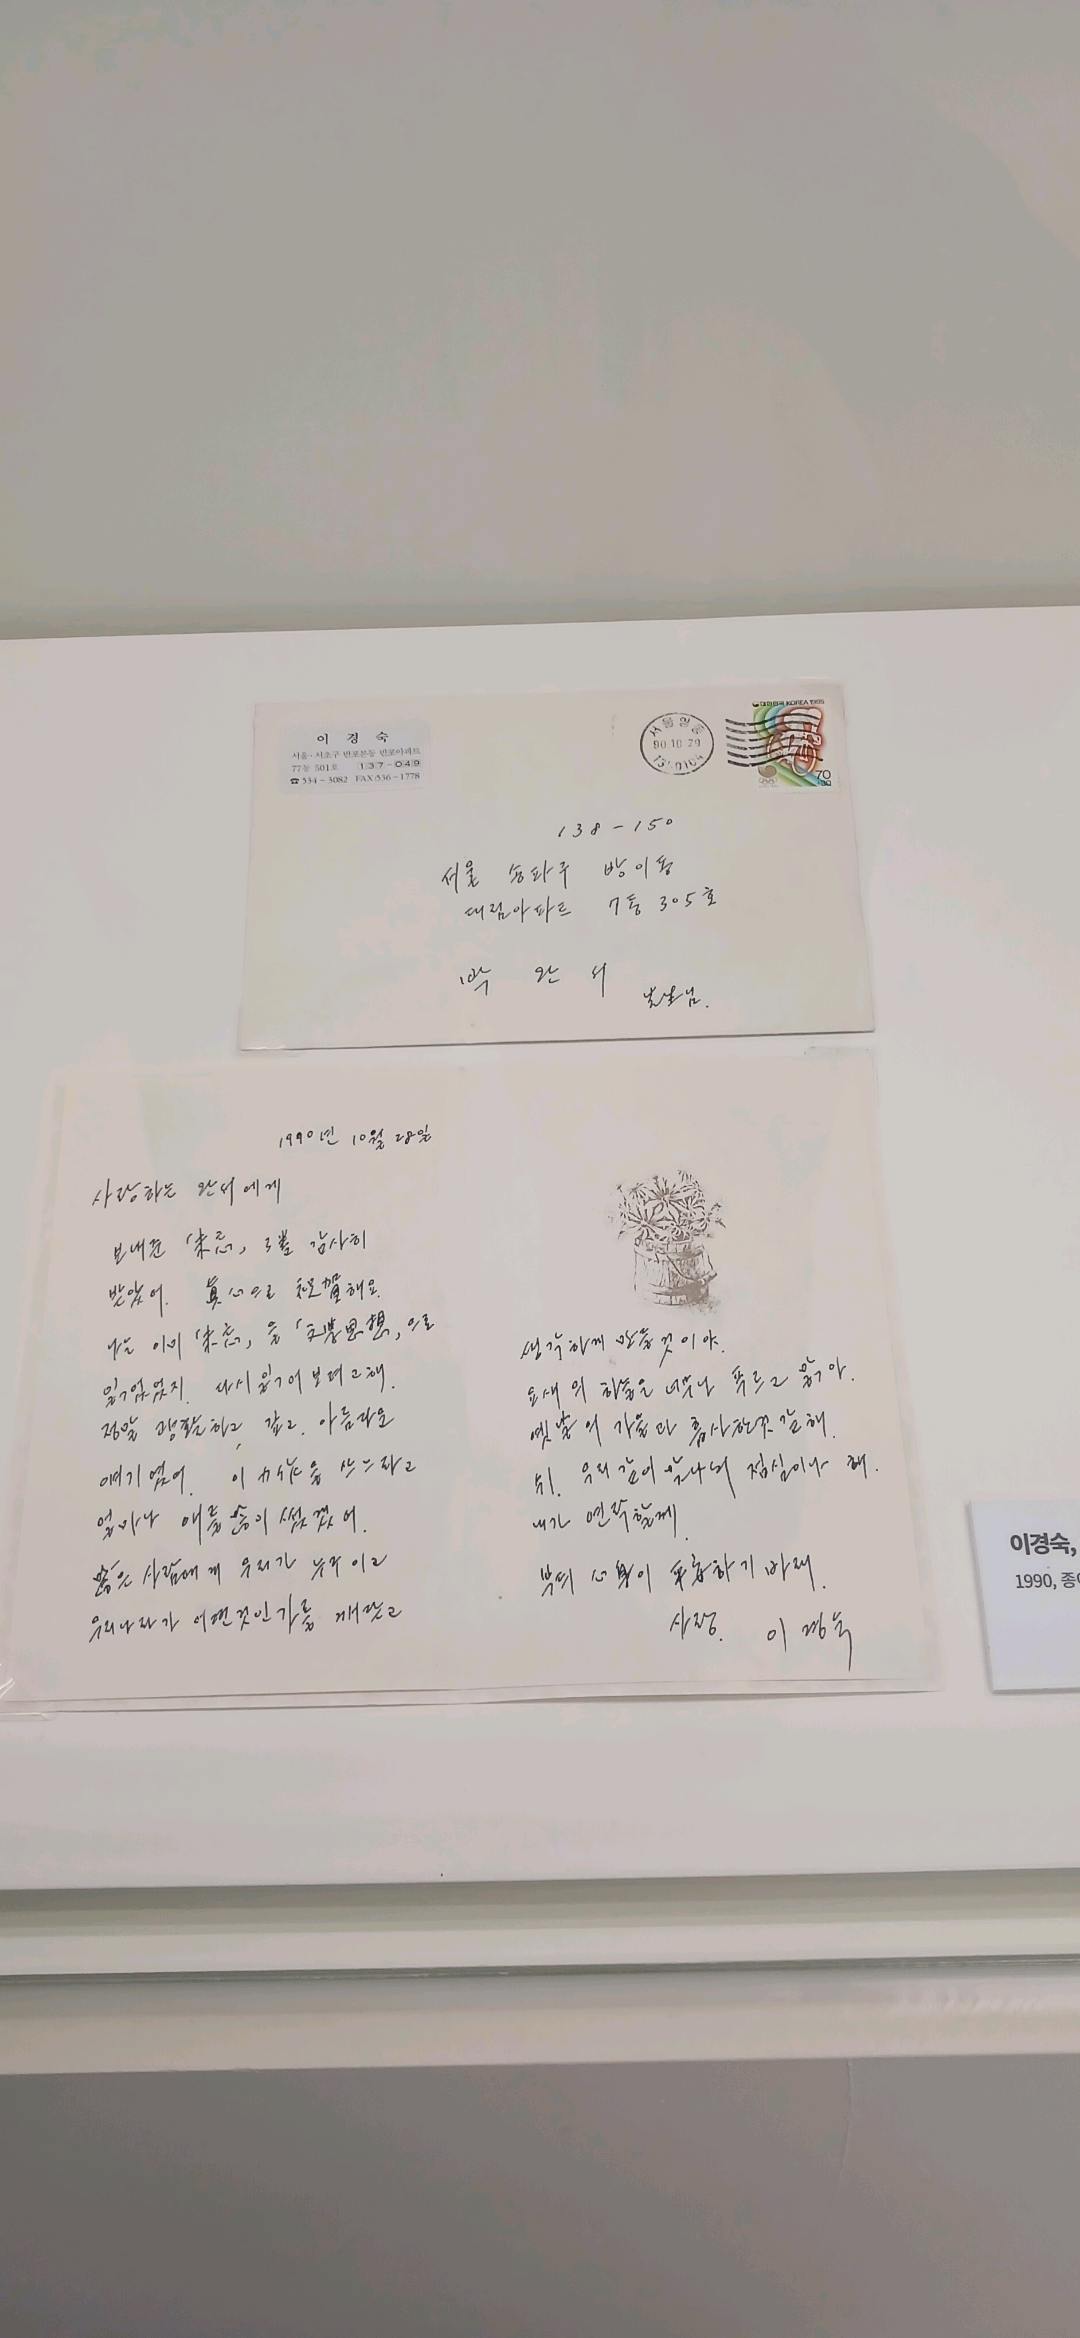 이 경 숙
서울·서초구 반포본동 반포아파트
77동 501호 137-049
☎ 534-3082 FAX 536-1778
서울
90.10.29
대한민국 KOREA 1985
70
+30
138-150
서울 송파구 방이동
대림아파트 7동 305호
박 완 서
1990년 10월 28일
사랑하는 완서에게
보내준 「未忘」 3볼 감사히
받았어. 眞心으로 祝賀해요.
나는 이미 「未忘」을 「文學思想」으로
읽었었지. 다시 읽어보려고해.
정말 광활하고 깊고 아름다운
얘기였어. 이 力作을 쓰느라고
얼마나 애를 많이 썼겠어.
많은 사람에게 우리가 누구이고
우리나라가 어떤것인가를 깨닫고
생각하게 만들것이야.
요새의 하늘은 너무나 푸르고 맑아.
옛날의 가을과 흡사한것 같애.
우리 같이 만나서 점심이나 해.
내가 연락할께.
부디 心身이 平安하기 바래.
사랑. 이 경숙
이경숙,
1990, 종이